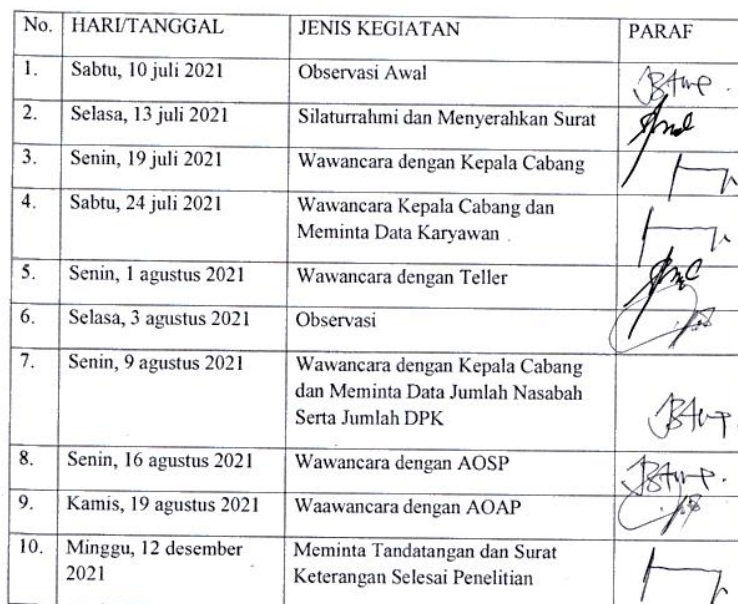 No. HARI/TANGGAL JENIS KEGIATAN PARAF
1. Sabtu, 10 juli 2021 Observasi Awal
2. Selasa, 13 juli 2021 Silaturrahmi dan Menyerahkan Surat
3. Senin, 19 juli 2021 Wawancara dengan Kepala Cabang
4. Sabtu, 24 juli 2021 Wawancara Kepala Cabang dan
Meminta Data Karyawan
5. Senin, 1 agustus 2021 Wawancara dengan Teller
6. Selasa, 3 agustus 2021 Observasi
7. Senin, 9 agustus 2021 Wawancara dengan Kepala Cabang
dan Meminta Data Jumlah Nasabah
Serta Jumlah DPK
8. Senin, 16 agustus 2021 Wawancara dengan AOSP
9. Kamis, 19 agustus 2021 Waawancara dengan AOAP
10. Minggu, 12 desember Meminta Tandatangan dan Surat
2021 Keterangan Selesai Penelitian